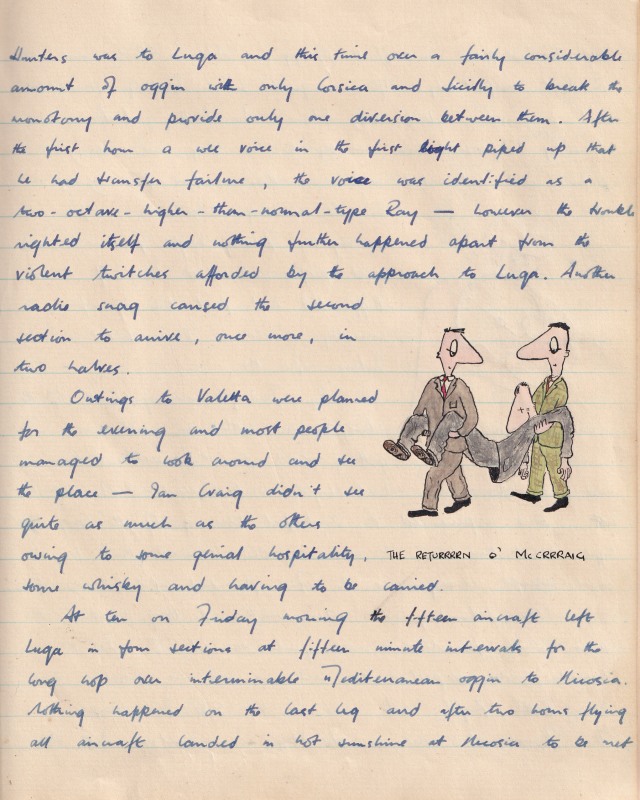 Hunters was to Luqa and this time over a fairly considerable
amount of oggin with only Corsica and Sicily to break the
monotony and provide only one diversion between them. After
the first hour a wee voice in the first light piped up that
he had transfer failure, the voice was identified as a
two-octave-higher-than-normal-type Ray — however the trouble
righted itself and nothing further happened apart from the
violent twitches afforded by the approach to Luqa. Another
radio snag caused the second
section to arrive, once more, in
two halves.
Outings to Valetta were planned
for the evening and most people
managed to look around and see
the place — Ian Craig didn't see
quite as much as the others
owing to some genial hospitality,
some whisky and having to be carried.
THE RETURRRRN O' McCRRRAIG
At ten on Friday morning the fifteen aircraft left
Luqa in four sections at fifteen minute intervals for the
long hop over interminable Mediterranean oggin to Nicosia.
Nothing happened on the last leg and after two hours flying
all aircraft landed in hot sunshine at Nicosia to be met